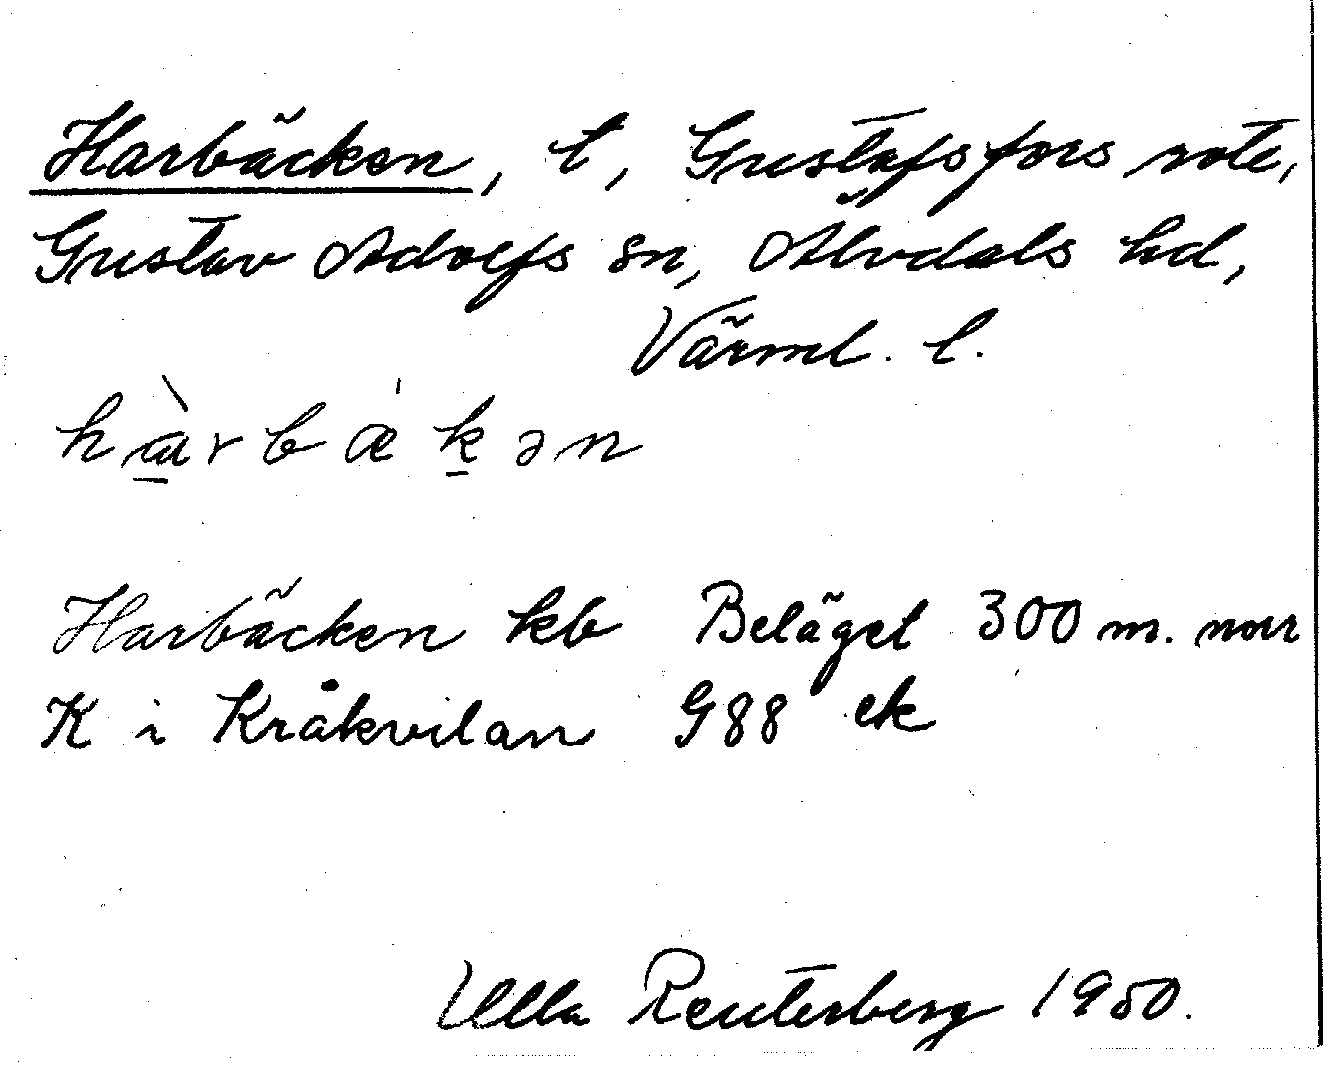 Harbäcken, t, Gustafsfors rote,
Gustav Adolfs sn, Älvdals hd,
Värml. l.
hà̱rbæ̍ḵən
Harbäcken kb Beläget 300 m. norr
K i Kråkvilan G88 ek
Ulla Reuterberg 1950.